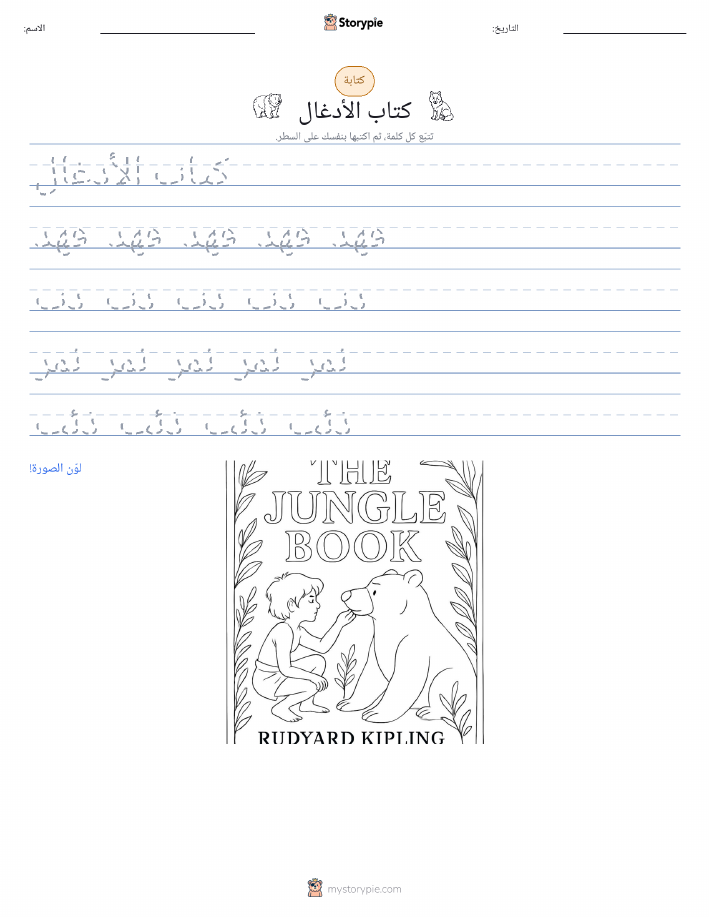 Storypie
الاسم:
التاريخ:
كتابة
كتاب الأدغال
تتبّع كل كلمة، ثم اكتبها بنفسك على السطر.
كتاب الأدغال
فهد. فهد. فهد. فهد. فهد.
دب دب دب دب دب
نمر نمر نمر نمر نمر
ذئب ذئب ذئب ذئب
لوّن الصورة!
THE
JUNGLE
BOOK
RUDYARD KIPLING
mystorypie.com